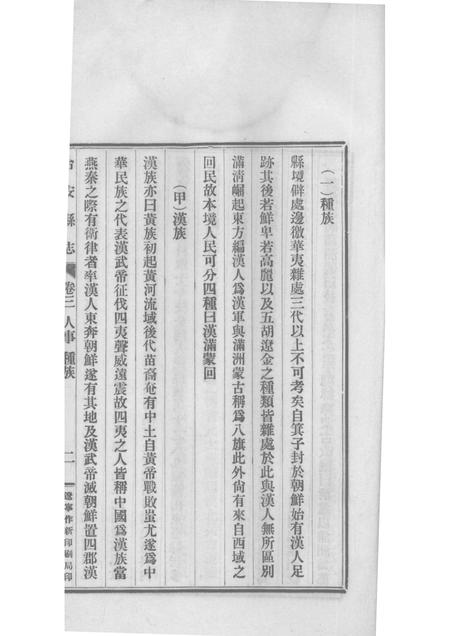 (一)種族
縣境僻處邊徼華夷雜處三代以上不可考矣自箕子封於朝鮮始有漢人足
跡其後若鮮卑若高麗以及五胡遼金之種類皆雜處於此與漢人無所區別
滿淸崛起東方編漢人爲漢軍與滿洲蒙古稱爲八旗此外尙有來自西域之
回民故本境人民可分四種曰漢滿蒙回
(甲)漢族
漢族亦曰黃族初起黃河流域後代苗裔奄有中土自黃帝戰敗蚩尤遂爲中
華民族之代表漢武帝征伐四夷聲威遠震故四夷之人皆稱中國爲漢族當
燕秦之際有衛律者率漢人東奔朝鮮遂有其地及漢武帝滅朝鮮置四郡漢
安縣志 卷三 人事 種族 二 遼寧作新印刷局印